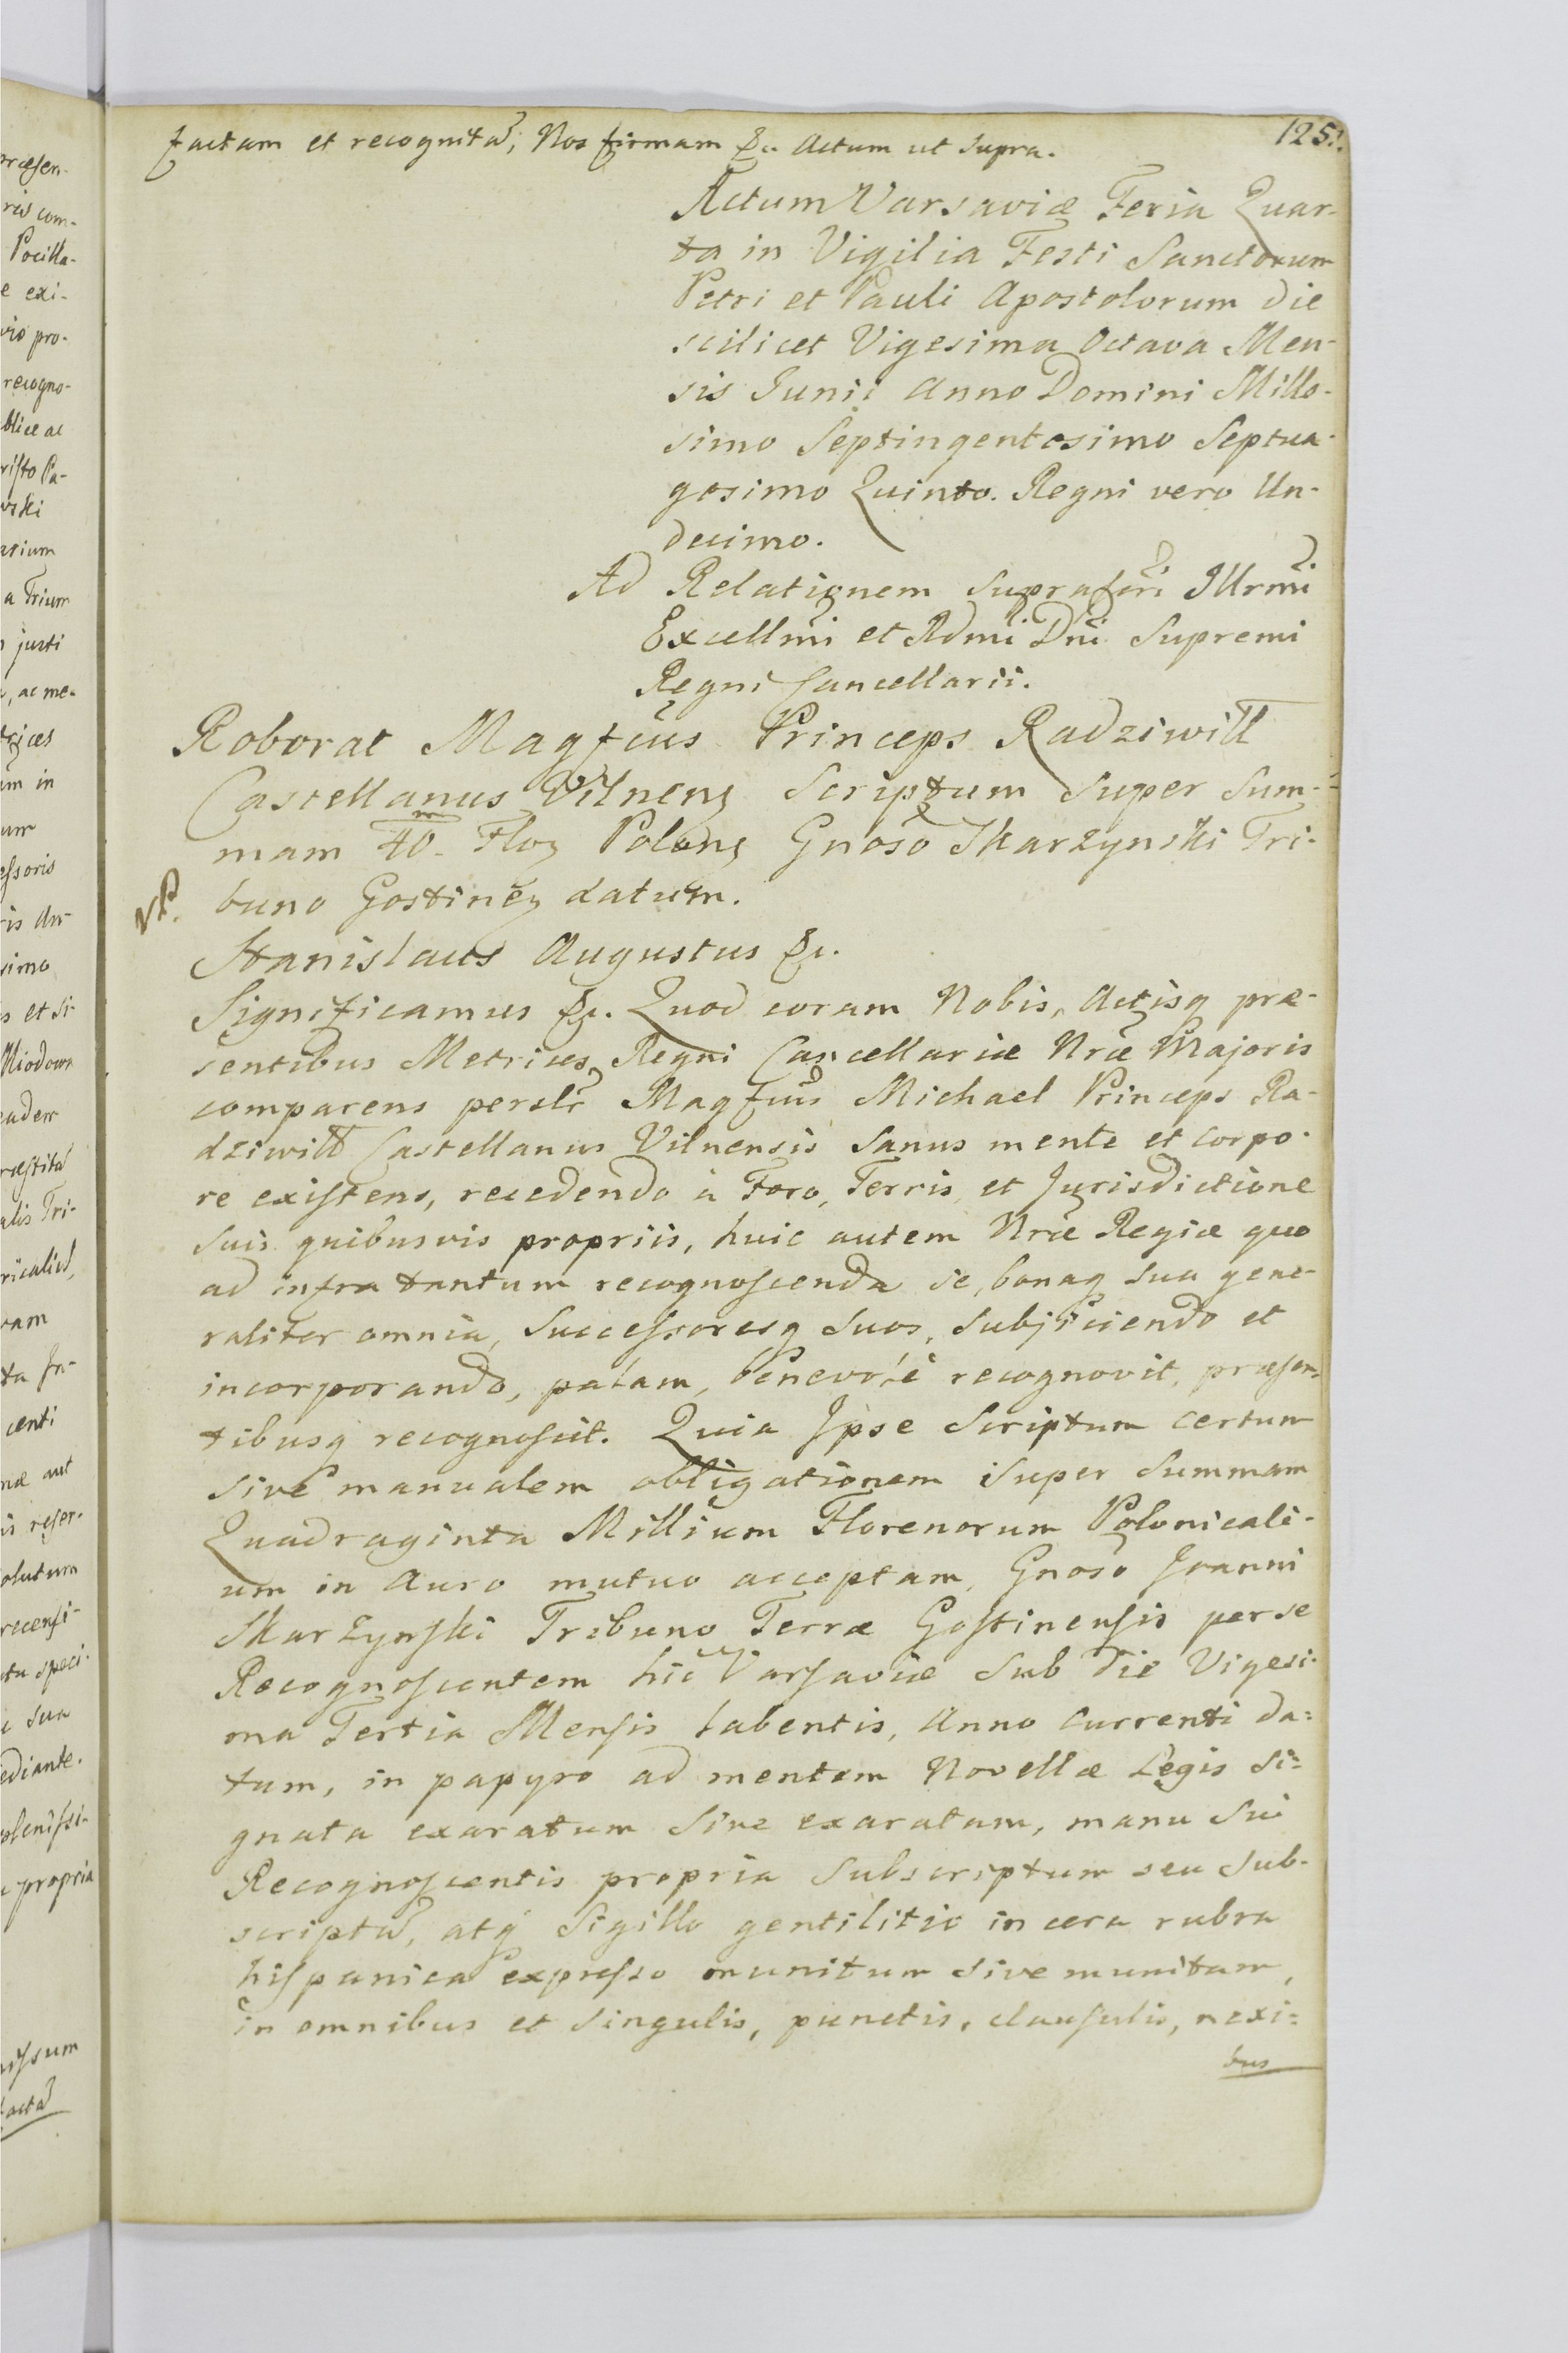 125.
factam et recognitã; Nos firmam &c. Actum ut supra.
Actum Varsaviæ Feria Quar-
ta in Vigilia Festi Sanctorum
Petri et Pauli Apostolorum die
scilicet Vigesima Octava Men-
sis Junii Anno Domini Mille-
simo Septingentesimo Septua-
gesimo Quinto. Regni vero Un-
decimo.
Ad Relationem suprascri Illrmi
Excellmi et Rdmi Dni Supremi
Regni Cancellarii.
Roborat Magfcus Princeps Radziwiłł
Castellanus Vilnens Scriptum super Sum-
mam 40 m Flor Polons Gnoso Skarzynski Tri-
buno Gostinen datum.
Stanislaus Augustus &c.
Significamus &c. Quod coram Nobis, Actisq præ-
sentibus Metrices Regni Cancellariæ Nræ Majoris
comparens persl̃r Magfcus Michael Princeps Ra-
dziwiłł Castellanus Vilnensis Sanus mente et corpo-
re existens, recedendo à Foro, Terris et Jurisdictione
suis quibusvis propriis, huic autem Nræ Regiæ quo
ad infra tantum recognoscenda se, bonaq sua gene-
raliter omnia, Successoresq suos, subjiciendo et
incorporando, palam, benevole recognovit, præsen-
tibusq recognoscit. Quia Ipse Scriptum certum
sive manualem obligationem super Summam
Quadraginta Millium Florenorum Polonicali-
um in Auro mutuo acceptam, Gnoso Joanni
Skarzynski Tribuno Terræ Gostinensis per se
Recognoscentem hic Varsaviæ Sub Die Vigesi-
ma Tertia Mensis labentis, Anno currenti da=
tum, in papyro ad mentem Novellæ Legis si=
gnata exaratum sive exaratam, manu sui
Recognoscentis propria Subscriptum seu Sub-
scriptã, atq Sigillo gentilitio in cera rubra
hispanica expresso munitum sive munitam,
in omnibus et singulis, punctis, clausulis, nexi=
bus